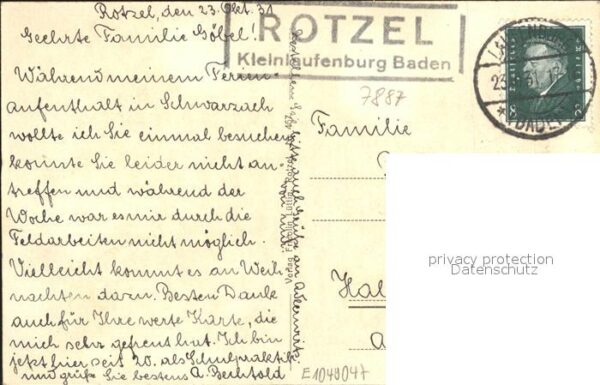 Rotzel, den 23. Okt. 31
Geehrte Familie Göbel!
Während meinem Ferien-
aufenthalt in Schwarzach
wollte ich Sie einmal besuchen
konnte Sie leider nicht an-
treffen und während der
Woche war es mir durch die
Feldarbeiten nicht möglich.
Vielleicht kommt es an Weih-
nachten dazu. Besten Dank
auch für Ihre werte Karte, die
mich sehr gefreut hat. Ich bin
jetzt hier seit 20. als Schulpraktik
und grüße Sie bestens A. Bechtold
ROTZEL
Kleinlaufenburg Baden
7887
Familie
Hal
privacy protection
Datenschutz
E1049047
Verlag